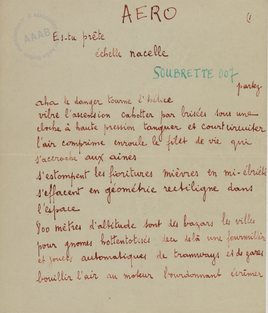 AERO
(1
AAAB
Es-tu prête
échelle nacelle
SOUBRETTE 007
partez
aha le danger tourne l'hélice
vibre l'ascension cahoter par brisées sous une
cloche à haute pression tanguer et courtcircuiter
l'air comprime enroule le filet de vie qui
s'accroche aux aines
s'estompent les fioritures mièvres en mi-ébriété
s'effacent en géométrie rectiligne dans
l'espace
800 mètres d'altitude sont des bazars les villes
pour gnomes hottentotises deçà delà une fourmilière
et puces automatiques de tramways et de gares
bouillir l'air au moteur bourdonnant écrémer